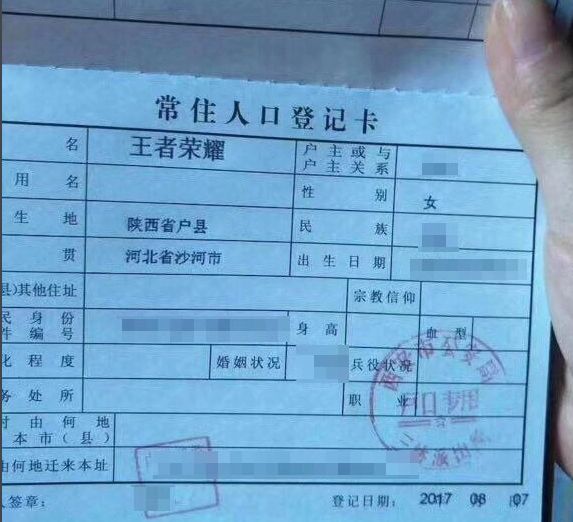 常住人口登记卡
名 王者荣耀 户主或与户主关系
用名 性别 女
生地 陕西省户县 民族
贯 河北省沙河市 出生日期
县)其他住址 宗教信仰
民身份
件编号 身高 血型
化程度 婚姻状况 兵役状况
务处所 职业
户口专用
时由何地
本市(县)
由何地迁来本址
人签章: 登记日期: 2017 年 08 月 07